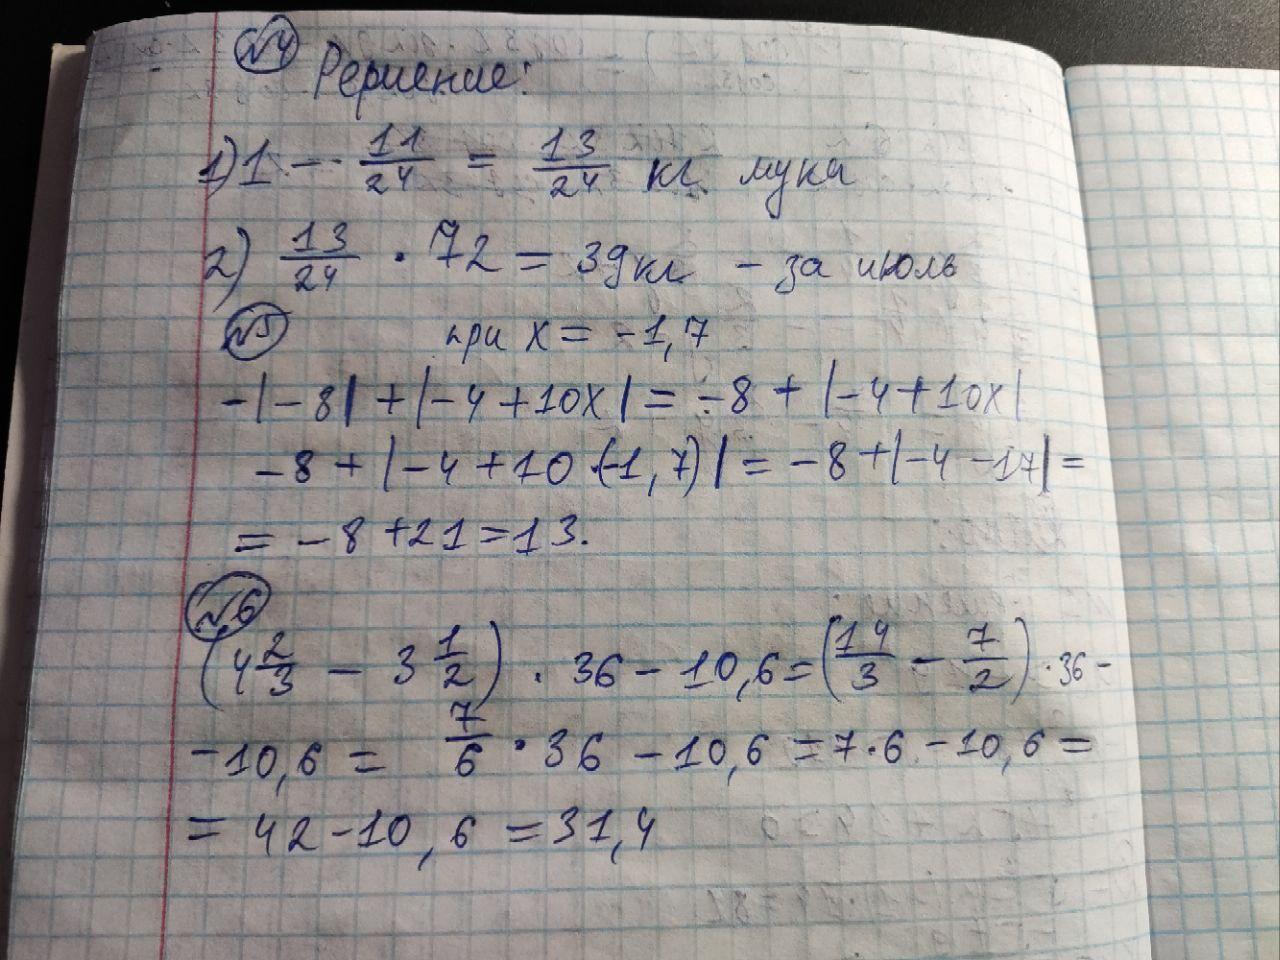 №4
Решение:
1) 1 - 11/24 = 13/24 кг мука
2) 13/24 · 72 = 39 кг - за июль
№5 при x = -1,7
-|-8| + |-4 + 10x| = -8 + |-4 + 10x|
-8 + |-4 + 10·(-1,7)| = -8 + |-4 - 17| =
= -8 + 21 = 13.
№6
(4 2/3 - 3 1/2) · 36 - 10,6 = (14/3 - 7/2) · 36 -
- 10,6 = 7/6 · 36 - 10,6 = 7·6 - 10,6 =
= 42 - 10,6 = 31,4